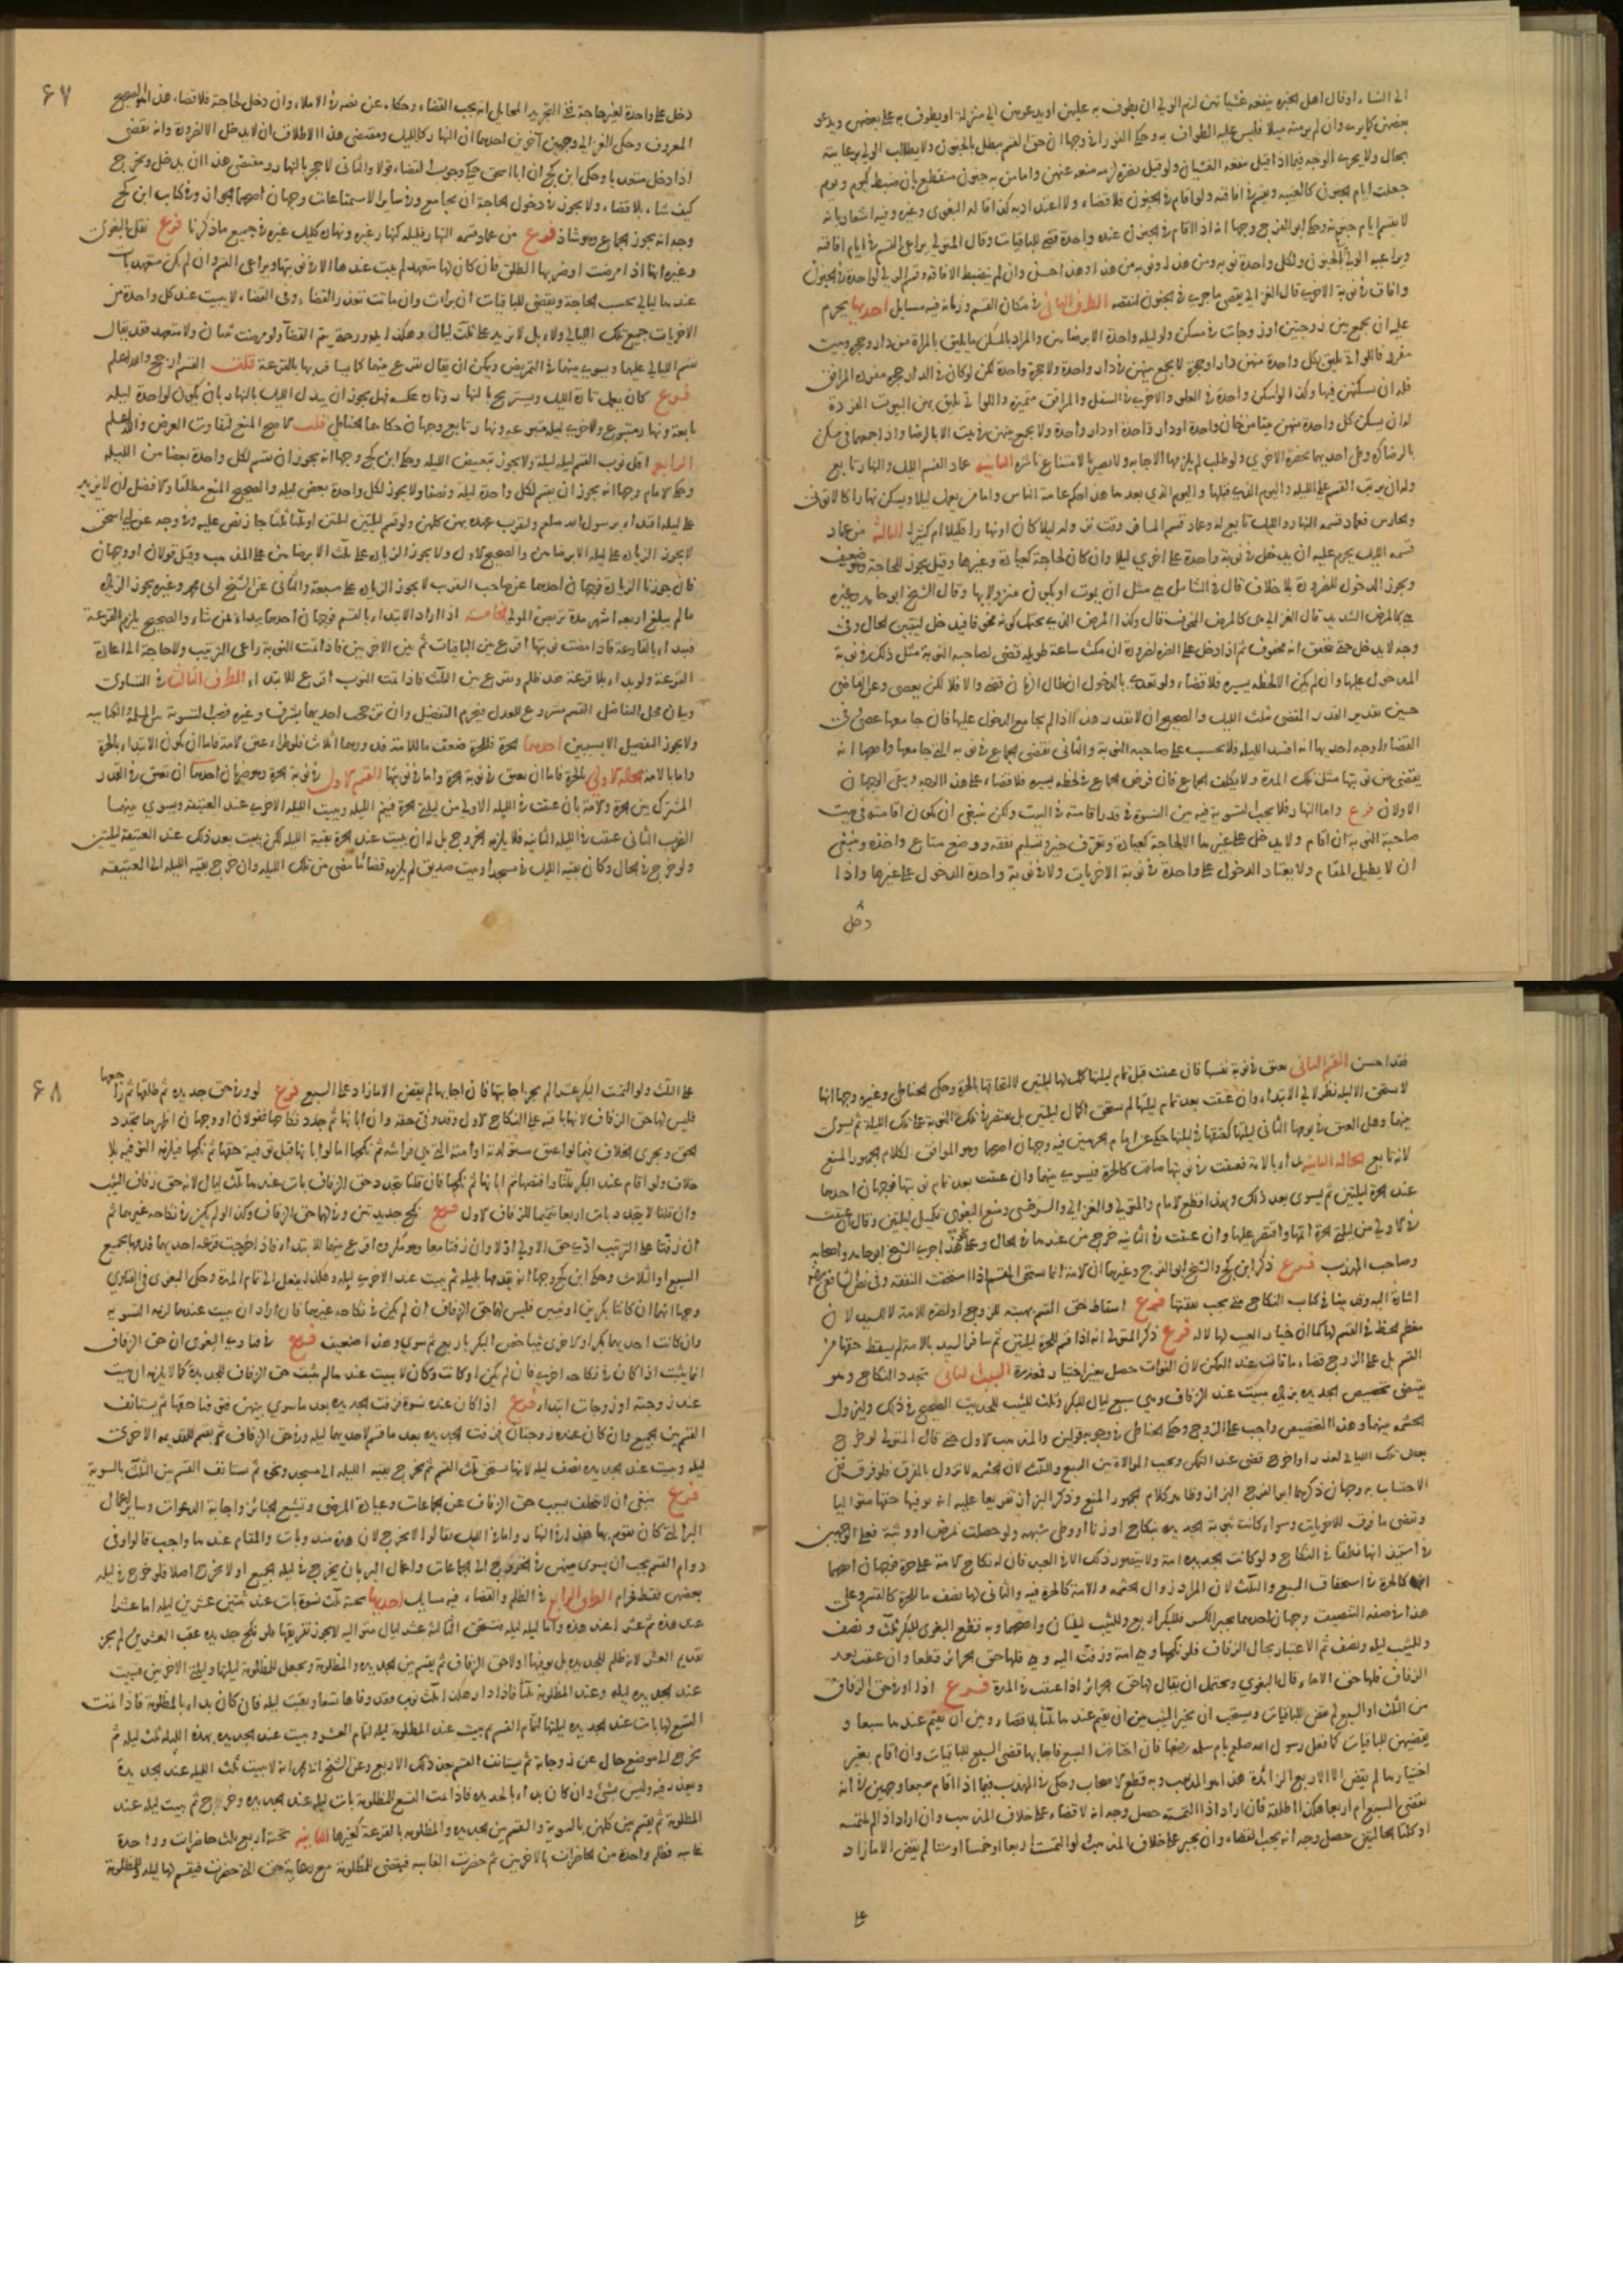 الى النساء او قال اهل الخبره ينفعه غشيانهن لزم الولي ان يطوف به عليهن او يدعوهن الى منزله او يطوف به على بعضهن ويدعو
بعضهن كما يرى وان لم يرمنه ميلا فليس عليه الطواف به وحكى الغزالي وجها ان حق القسم يبطل بالجنون ولا يطالب الولي برعايته
بحال ولا يجري الوجه فيما اذا قيل ينفعه الغشيان ولو قيل يضره لزمه منعه عنهن واما من به جنون منقطع بان ضبط كيوم ويوم
جعلت ايام الجنون كالغيبه ويقسم في افاقته ولو اقام في الجنون فلا قضاء ولا اعتداد به كذا قاله البغوي وغيره وفيه اشعار بانه
لا يقسم ايام جنونه وحكى ابو الفرج وجها انه اذا اقام في الجنون عند واحدة قضى للباقيات وقال المتولي يراعى القسم في ايام افاقته
وافاق في نوبة الاخرى قال الغزالي يقضي ما جرى في الجنون لنقصه الطرف الثاني في مكان القسم وزمانه فيه مسايل احديها يحرم
عليه ان يجمع بين زوجتين او زوجات في مسكن ولو ليله واحدة الا برضاهن والمراد بالمسكن ما يليق بالمراة من دار وحجره وبيت
فله ان يسكنهن فيها وكذا لو اسكن واحدة في العلو والاخرى في السفل والمرافق متميزه واللواتي يليق بهن البيوت الفردة
له ان يسكن كل واحدة منهن بيتا من خان واحدة او دار واحدة ولا يجمع بينهن في بيت الا بالرضا واذا جمعهما في مسكن
بالرضا كره وطي احديهما بحضرة الاخرى ولو طلب لم يلزمها الاجابه ولا تصير بالامتناع ناشزه الثانيه عماد القسم الليل والنهار تابع
وله ان يرتب القسم على الليله واليوم الذي قبلها او اليوم الذي بعدها هذا حكم عامة الناس واما من يعمل ليلا ويسكن نهارا كالاتوني
والحارس فعماد قسمه النهار والليل تابع له وعماد قسم المسافر وقت نزوله ليلا كان او نهارا قليلا ام كثيرا الثالثه من عماد
قسمه الليل يحرم عليه ان يدخل في نوبة واحدة على اخرى ليلا وان كان لحاجة كعيادة وغيرها وقيل يجوز للحاجة وهو ضعيف
ويجوز الدخول للضرورة بلا خلاف قال في الشامل هي مثل ان يموت او يكون منزولا بها وقال الشيخ ابو حامد وغيره
هي كالمرض الشديد قال الغزالي هي كالمرض المخوف قال وكذا المرض الذي يحتمل كونه مخوفا فيدخل ليتبين الحال وفي
وجه لا يدخل حتى يتحقق انه مخوف ثم اذا دخل على الضره لضرورة ان مكث ساعة طويله قضى لصاحبه النوبة مثل ذلك في نوبة
المدخول عليها وان لم يكن الا لحظه يسيره فلا قضاء ولو تعدى بالدخول ان طال الزمان قضى والا فلا لكن يعصي وعن القاضي
حسين تقدير القدر المقضي بثلث الليل والصحيح ان لا تقدير هذا اذا لم يجامع المدخول عليها فان جامعها عصى وفي
القضاء اوجه احديها انه افسد الليله فلا تحسب على صاحبه النوبة والثاني يقضي الجماع في نوبه التي جامعها واصحها انه
يقضي من نوبتها مثل تلك المدة ولا يكلف الجماع فان فرض الجماع في لحظه يسيره فلا قضاء على هذا الوجه ويبقى الوجهان
الاولان فرع واما النهار فلا يجب التسوية فيه بين النسوة في قدر اقامته في البيت ولكن ينبغي ان يكون اقامته في بيت
صاحبة النوبة ان اقام ولا يدخل على غيرها الا لحاجة كعيادة وتعرف خبر وتسليم نفقه ووضع متاع واخذه وينبغي
ان لا يطيل المقام ولا يعتاد الدخول على واحدة في نوبة الاخريات ولا في نوبة واحدة الدخول على غيرها واذا
دخل
۶۷
دخل على واحدة لغير حاجة ففي التجريد للمحاملي انه يجب القضاء وحكاه عن نصه في الاملاء وان دخل لحاجة فلا قضاء هذا هو الصحيح
المعروف وحكى الغزالي وجهين آخرين احدهما ان النهار كالليل ومقتضى هذا الاطلاق ان لا يدخل الا لضرورة وانه يقضي
اذا دخل متعديا وحكى ابن كج ان ابا اسحق حكى وجوب القضاء قولا والثاني لا حجر بالنهار ومقتضى هذا ان يدخل ويخرج
كيف شاء بلا قضاء ولا يجوز في دخول الحاجة ان يجامع وفي ساير الاستمتاعات وجهان اصحهما الجواز وفي كتاب ابن كج
وجه انه يجوز الجماع وهو شاذ فرع من عماد قسمه النهار فليله كنهار غيره ونهاره كليل غيره في جميع ما ذكرنا فرع نقل البغوي
وغيره انها اذا مرضت او ضربها الطلق فان كان لها متعهد لم يبت عندها الا في نوبتها ويراعي القسم وان لم يكن متعهد بات
عندها ليالي بحسب الحاجة ويقضي للباقيات ان برات وان ماتت تعذر القضاء وفي القضاء لا يبيت عند كل واحدة من
الاخريات جميع تلك الليالي ولاء بل لا يزيد على ثلث ليال وهكذا يدور حتى يتم القضا ولو مرضت ثنتان ولا متعهد فقد يقال
يقسم الليالي عليهما ويسوي بينهما في التمريض ويمكن ان يقال يقرع بينهما كما يسافر بها بالقرعة قلت القسم ارجح والله اعلم
فرع كان يعمل تارة الليل ويستريح بالنهار وتارة عكسه فهل يجوز ان يبدل الليل بالنهار بان يكون لواحدة ليله
تابعة ونهار متبوع ولاخرى ليله متبوعه ونهار تابع وجهان حكاهما الحناطي قلت الاصح المنع لتفاوت الغرض والله اعلم
الرابع اقل نوب القسم ليله ليلة ولا يجوز تبعيض الليله وحكى ابن كج وجها انه يجوز ان يقسم لكل واحدة بعضا من الليله
وحكى الامام وجها انه يجوز ان يقسم لكل واحدة ليلة ونصفا ولا يجوز لكل واحدة بعض ليله والصحيح المنع مطلقا والافضل ان لا يزيد
على ليله اقتداء برسول الله صلعم وليقرب عهده بهن كلهن ولو قسم ليلتين ليلتين او ثلثا ثلثا جاز نص عليه وفي وجه عن ابي اسحق
لا يجوز الزيادة على ليله الا برضاهن والصحيح الاول ولا يجوز الزيادة على ثلث الا برضاهن على المذهب وقيل قولان او وجهان
فان جوزنا الزيادة فوجهان احدهما عن صاحب التقريب لا يجوز الزيادة على سبعة والثاني عن الشيخ ابي محمد وغيره يجوز الزيادة
ما لم يبلغ اربعه اشهر مدة تربص المولي الخامسه اذا اراد الابتداء بالقسم فوجهان احدهما يبدا بمن شاء والصحيح يلزم القرعة
فيبداء بالقارعة فاذا مضت نوبتها اقرع بين الباقيات ثم بين الاخريين فاذا تمت النوبة راعى الترتيب ولا حاجة الى اعادة
القرعة ولو بداء بلا قرعة فقد ظلم ويقرع بين الثلث فاذا تمت النوب اقرع للابتداء الطرف الثالث في التساوي
وبيان محل التفاضل القسم مشروع للعدل فيحرم التفضيل وان ترجحت احديهما بشرف وغيره فتجب التسوية بين المسلمة والكتابيه
ولا يجوز التفضيل الا بسببين احدهما الحرة فللحرة ضعف ما للامة فلو دورهما اثلاث فلو طراء عتق الامة فاما ان يكون الابتداء بالحرة
واما بالامة الحالة الاولى بالحرة فاما ان يعتق في نوبة الحرة واما في نوبتها القسم الاول في نوبة الحرة وهو ضربان احدهما ان تعتق في القدر
المشترك بين الحرة والامة بان عتقت في الليله الاولى من ليلتي الحرة فيتم الليله ويبيت الليله الاخرى عند العتيقه ويسوي بينهما
الضرب الثاني عتقت في الليله الثانيه فلا يلزمه الخروج بل له ان يبيت عند الحرة بقية الليله لكن يبيت بعد ذلك عند العتيقه ليلتين
ولو خرج في الحال وكان بقيه الليل في مسجد او بيت صديق لم يلزمه قضاء ما مضى من تلك الليله وان خرج بقيه الليله الى العتيقه
فقد احسن القسم الثاني يعتق في نوبة نفسها فان عتقت قبل تمام ليلتها كمل لها ليلتين لالتحاقها بالحرة وحكى الحناطي وغيره وجها انها
لا تستحق الا ليله نظرا الى الابتداء وان عتقت بعد تمام ليلتها لم تستحق اكمال ليلتين بل يقتصر في تلك النوبة على تلك الليلة ثم يسوي
بينهما وهل العتق في يومها التالي ليلتها كعتقها في ليلتها حكى عن امام الحرمين فيه وجهان اصحهما وهو الموافق لكلام الجمهور المنع
لانه تابع الحالة الثانيه بداء بالامة فعتقت في نوبتها صارت كالحرة فيسوي بينهما وان عتقت بعد تمام نوبتها فوجهان احدهما
عند الحرة ليلتين ثم يسوي بعد ذلك وبهذا قطع الامام والمتولي والغزالي والسرخسي ومنع البغوي تكميل ليلتين وقال ان عتقت
في الاولى من ليلتي الحرة اتمها واقتصر عليها وان عتقت في الثانيه خرج من عندها في الحال وعلى هذا جرى الشيخ ابو حامد واصحابه
وصاحب المهذب فرع ذكر ابن كج والشيخ ابو الفرج وغيرهما ان الامة انما تستحق القسم اذا استحقت النفقه وفي نص الشافعي رضه
اشارة اليه وقد بينا في كتاب النكاح متى يجب نفقتها فرع اسقاط حق القسم بهبته للزوج او لضره للامة لا للسيد لان
معظم الحظ في القسم لها كما ان خيار العيب لها لا له فرع ذكر المتولي انه اذا قسم للحرة ليلتين ثم سافر السيد بالامة لم يسقط حقها من
القسم بل على الزوج قضاء ما فات عند التمكن لان الفوات حصل بغير اختيارها فعذرت السبب الثاني تجدد النكاح وهو
يقتضي تخصيص الجديده بزيادة مبيت عند الزفاف وهي سبع ليال للبكر وثلث للثيب للحديث الصحيح في ذلك وليزول
الحشمه بينهما وهذا التخصيص واجب على الزوج وحكى الحناطي في وجوبه قولين والمذهب الاول حتى قال المتولي لو خرج
بعض تلك الليالي لعذر او اخرج قضى عند التمكن ويجب الموالاة بين السبع والثلث لان الحشمه لا تزول بالمفرق فلو فرق ففي
الاحتساب به وجهان ذكرهما ابو الفرج البزاز وظاهر كلام الجمهور المنع وذكر البزاز تفريعا عليه انه يوفيها حقها متواليا
ويقضي ما فرق للاخريات وسواء كانت ثيوبة الجديده بنكاح او زنا او وطي شبهه ولو حصلت بمرض او وثبة فعلى الوجهين
في استيذانها نطقا في النكاح ولو كانت الجديده امة ولا يتصور ذلك الا في العبد فان له نكاح الامة على حرة فوجهان اصحهما
انها كالحرة في استحقاق السبع والثلث لان المراد زوال الحشمه والامة كالحرة فيه والثاني لها نصف ما للحرة كالقسم وعلى
هذا في صفه التنصيف وجهان احدهما يجبر الكسر فللبكر اربع وللثيب ليلتان واصحهما وبه قطع البغوي للبكر ثلث ونصف
وللثيب ليله ونصف ثم الاعتبار بحال الزفاف فلو نكحها وهي امة وزفت اليه وهي حرة فلها حق الحرائر قطعا وان عتقت بعد
الزفاف فلها حق الاماء قال البغوي ويحتمل ان يقال لها حق الحرائر اذا عتقت في المدة فرع اذا اوفى حق الزفاف
من الثلث او السبع لم يقض للباقيات ويستحب ان يخير الثيب بين ان يقيم عندها ثلثا بلا قضاء وبين ان يقيم عندها سبعا و
يقضيهن للباقيات كما فعل رسول الله صلعم بام سلمه رضها فان اختارت السبع فاجابها قضى السبع للباقيات وان اقام بغير
اختيارها لم يقض الا الاربع الزائدة هذا هو المذهب وبه قطع الاصحاب وحكى في المهذب فيما اذا اقام سبعا وجهين في انه
يقضي السبع ام اربعا هكذا اطلقه فان اراد اذا التمسته حصل وجه انه لا قضاء على خلاف المذهب وان اراد اذا لم تلتمسه
او كلتا الحالتين حصل وجه انه يجب القضاء وان يجبر على خلاف المذهب ولو التمست اربعا او خمسا او ستا لم يقض الا ما زاد
على
۶۸
على الثلث ولو التمست البكر عشرا لم يجز اجابتها فان اجابها لم يقض الا ما زاد على السبع فرع لو وفى حق جديده ثم طلقها ثم راجعها
فليس لها حق الزفاف لانها باقيه على النكاح الاول وقد وفى حقه وان ابانها ثم جدد نكاحها فقولان او وجهان اظهرهما تجدد
الحق ويجري الخلاف فيما لو اعتق مستولدته او امته التي هي فراشه ثم نكحها اما لو ابانها قبل توفية حقها ثم نكحها فيلزمه التوفيه بلا
خلاف ولو اقام عند البكر ثلثا وافتضها ثم ابانها ثم نكحها فان قلنا يتجدد حق الزفاف بات عندها ثلث ليال لانه حق زفاف الثيب
وان قلنا لا يتجدد بات اربعا تتميما للزفاف الاول فرع نكح جديدتين وفي لهما حق الزفاف وكذا لو لم يكن في نكاحه غيرهما ثم
ان زفتا على الترتيب ادى حق الاولى اولا وان زفتا معا وهو مكروه اقرع بينهما للابتداء فاذا خرجت قرعه احديهما قدمها بجميع
السبع او الثلاث وحكى ابن كج وجها انه يقدمها بليله ثم يبيت عند الاخرى ليله وهكذا يفعل الى تمام المدة وحكى البغوي في الفتاوي
وجها انهما ان كانتا بكرين او ثيبين فليس لهما حق الزفاف ان لم يكن في نكاحه غيرهما فان اراد ان يبيت عندهما لزمه التسويه
وان كانت احديهما بكرا والاخرى ثيبا خص البكر باربع ثم سوى وهذا ضعيف فرع في فتاوي البغوي ان حق الزفاف
انما يثبت اذا كان في نكاحه اخرى فان لم يكن او كانت وكان لا يبيت عندها لم يثبت حق الزفاف للجديدة كما لا يلزمه ان يبيت
عند زوجته او زوجات ابتداء فرع اذا كان عنده نسوة فزفت الجديده بعد ما سوى بينهن وفى حقها ثم يستانف
القسم بين الجميع وان كان عنده زوجتان فزفت الجديده بعد ما قسم لاحديهما ليله وفى حق الزفاف ثم يقسم للقديمه الاخرى
ليله ويبيت عند الجديده نصف ليله لانها تستحق ثلث القسم ثم يخرج بقيه الليله الى مسجد ونحوه ثم يستانف القسم بين الثلث بالسوية
فرع ينبغي ان لا يتخلف بسبب حق الزفاف عن الجماعات وعيادة المرضى وتشييع الجنائز واجابة الدعوات وساير اعمال
البر التي كان يقوم بها هذا في النهار واما في الليل فقالوا لا يخرج لان هذه مندوبات والمقام عندها واجب قالوا وفي
دوام القسم يجب ان يسوي بينهن في الخروج الى الجماعات واعمال البر بان يخرج في ليله الجميع او لا يخرج اصلا فلو خرج في ليله
بعضهن فقط فحرام الطرف الرابع في الظلم والقضاء فيه مسايل احديها تحته ثلث نسوة بات عند ثنتين عشرين ليله اما عشرا
عند هذه ثم عشرا عند هذه واما ليله ليله فتستحق الثالثة عشر ليال متواليه لا يجوز تفريقها فلو نكح جديده عقب العشرين لم يجز
تقديم العشر لانه ظلم للجديده بل يوفيها اولا حق الزفاف ثم يقسم بين الجديده والمظلومة ويجعل للمظلومة ليلتها وليلة الاخريين فيبيت
عند الجديده ليله وعند المظلومة ثلثا فاذا دار هكذا ثلث نوب فقد وفاها تسعا وبقيت ليله فان كان بداء بالمظلومة فاذا تمت
التسع لها بات عند الجديده ليلتها لتمام القسم ثم يبيت عند المظلومة ليله لتمام العشر ويبيت عند الجديده بهذه الليله ثلث ليله ثم
يخرج الى موضع خال عن زوجاته ثم يستانف القسم بعد ذلك الاربع وعن الشيخ ابي محمد انه لا يبيت ثلث الليله عند الجديدة
ويعذر فيه وليس بشئ وان كان بداء بالجديده فاذا تمت التسع للمظلومة بات ثلث ليله عند الجديده وخرج ثم يبيت ليله عند
المظلومة ثم يقسم بين كلهن بالسوية والقسم بين الجديده والمظلومه بالقرعة كغيرها الثانيه تحته اربع ثلث حاضرات وواحدة
غايبه فظلم واحدة من الحاضرات بالاخريين ثم حضرت الغايبه فيقضي للمظلومة مع رعاية حق التي حضرت فيقسم لها ليله وللمظلومة